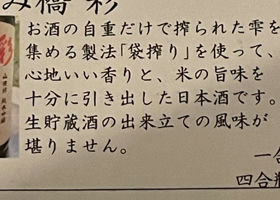 み橋 彩
お酒の自重だけで搾られた雫を
集める製法「袋搾り」を使って、
心地いい香りと、米の旨味を
十分に引き出した日本酒です。
生貯蔵酒の出来立ての風味が
堪りません。
一合
四合瓶